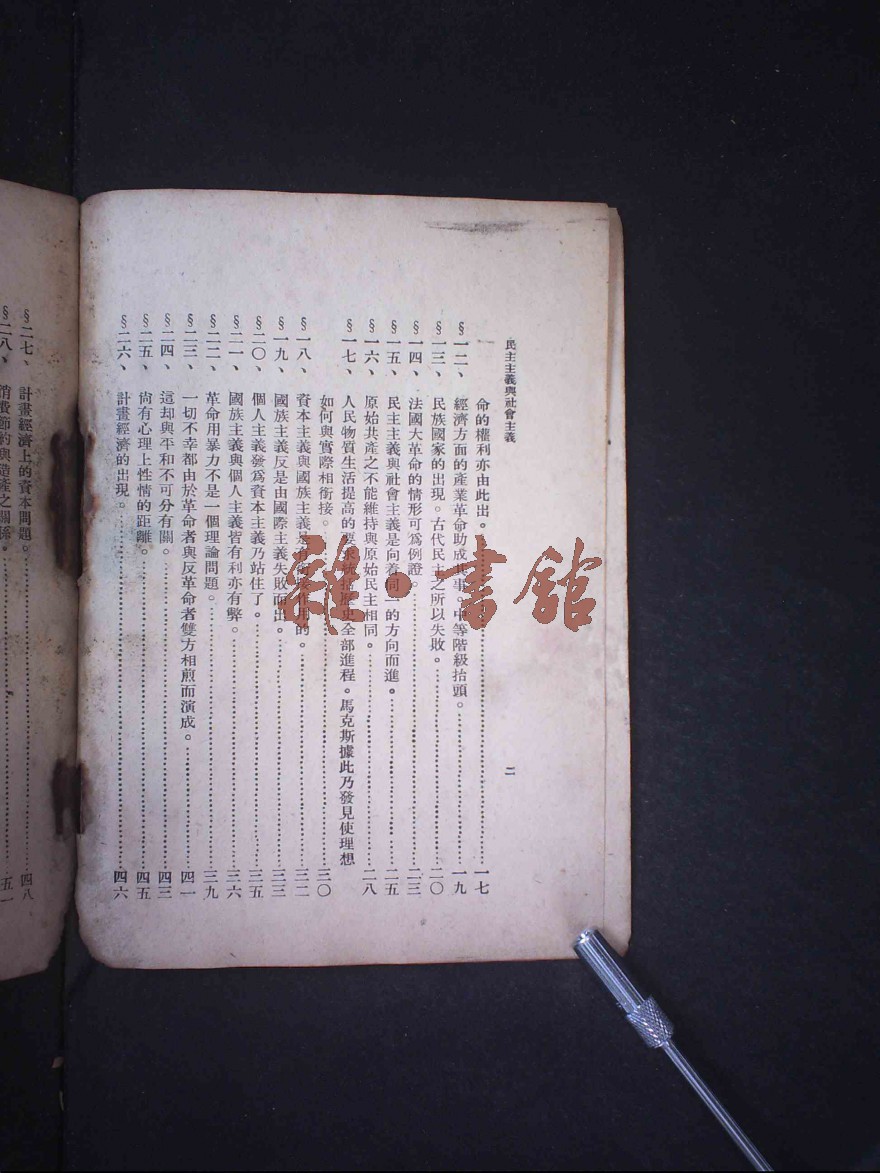 民主主義與社會主義
二
命的權利亦由此出。……一七
§一二、經濟方面的產業革命助成其事。中等階級抬頭。……一九
§一三、民族國家的出現。古代民主之所以失敗。……二〇
§一四、法國大革命的情形可爲例證。……二三
§一五、民主主義與社會主義是向着同一的方向而進。……二五
§一六、原始共產之不能維持與原始民主相同。……二八
§一七、人民物質生活提高的要求 全部進程。馬克斯據此乃發見使理想
如何與實際相銜接。……三〇
§一八、資本主義與國族主義是 作用的。……三二
§一九、國族主義反是由國際主義失敗而出。……三三
§二〇、個人主義發爲資本主義乃站住了。……三五
§二一、國族主義與個人主義皆有利亦有弊。……三六
§二二、革命用暴力不是一個理論問題。……三九
§二三、一切不幸都由於革命者與反革命者雙方相煎而演成。……四一
§二四、這却與平和不可分有關。……四三
§二五、尚有心理上性情的距離。……四五
§二六、計畫經濟的出現。……四六
§二七、計畫經濟上的資本問題。……四八
§二八、消費節約與造產之關係。……五一
雜·書館